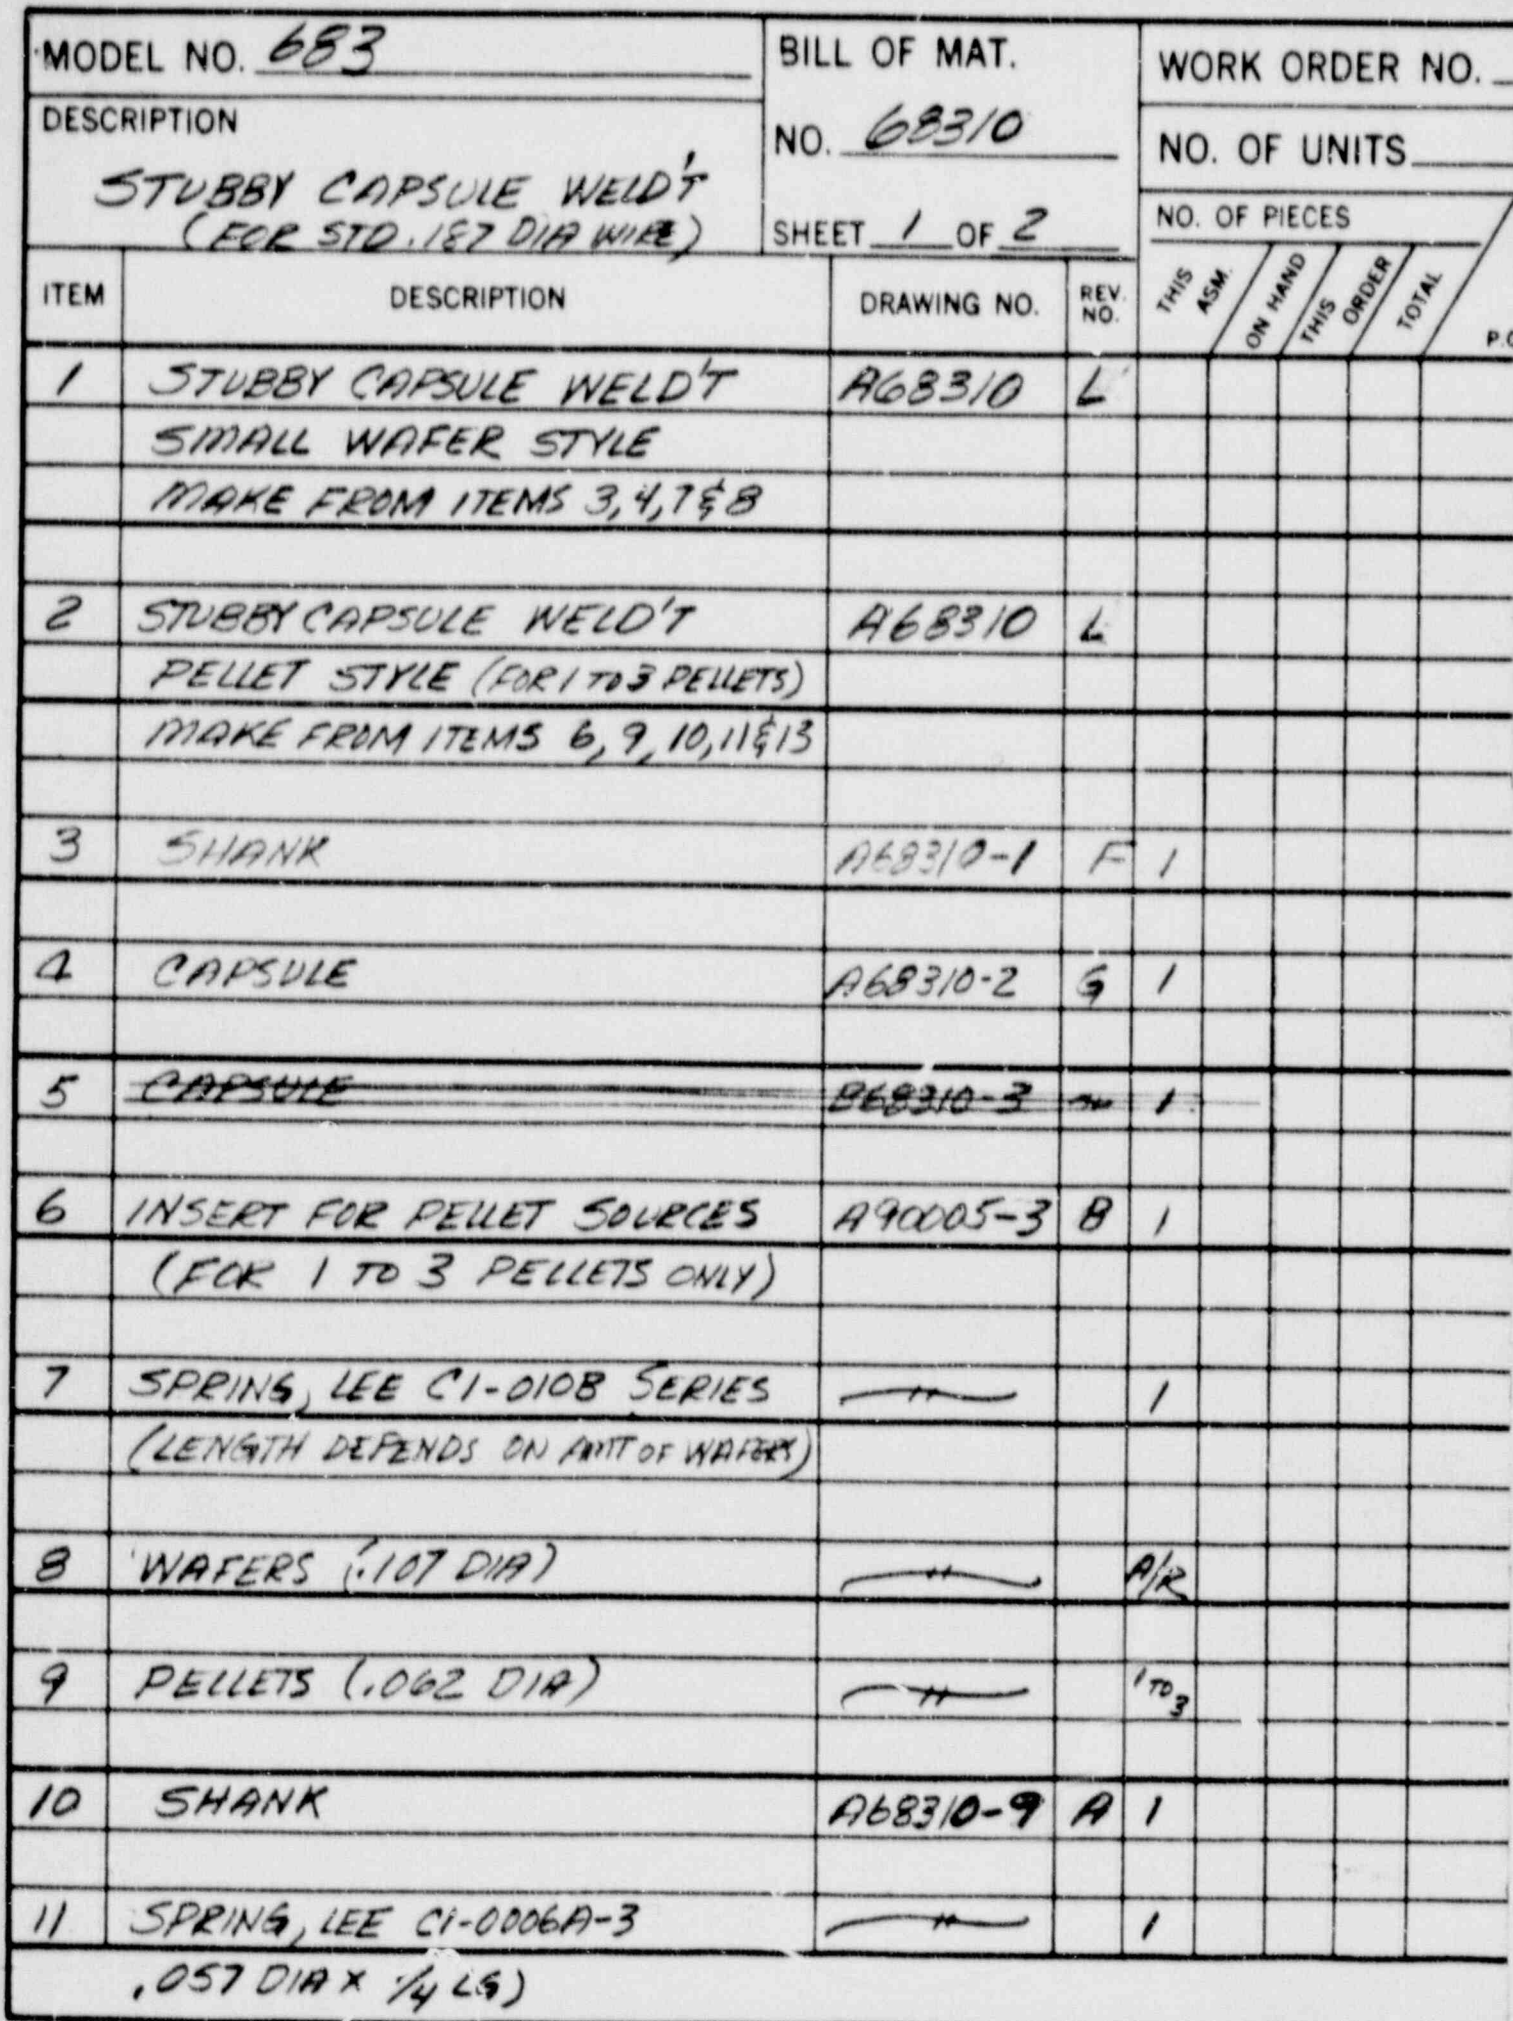 MODEL NO. 683
BILL OF MAT.
NO. 68310
SHEET 1 OF 2
WORK ORDER NO.
NO. OF UNITS
DESCRIPTION
STUBBY CAPSULE WELD'T
(FOR STD .187 DIA WIRE)
NO. OF PIECES
ITEM DESCRIPTION DRAWING NO. REV. NO. THIS ASM. ON HAND THIS ORDER TOTAL
1 STUBBY CAPSULE WELD'T A68310 L
SMALL WAFER STYLE
MAKE FROM ITEMS 3,4,7&8
2 STUBBY CAPSULE WELD'T A68310 L
PELLET STYLE (FOR 1 TO 3 PELLETS)
MAKE FROM ITEMS 6,9,10,11&13
3 SHANK A68310-1 F 1
4 CAPSULE A68310-2 G 1
5 CAPSULE B68310-3 1
6 INSERT FOR PELLET SOURCES A90005-3 B 1
(FOR 1 TO 3 PELLETS ONLY)
7 SPRING, LEE CI-010B SERIES 1
(LENGTH DEPENDS ON AMT OF WAFERS)
8 WAFERS (.107 DIA) A/R
9 PELLETS (.062 DIA) 1 TO 3
10 SHANK A68310-9 A 1
11 SPRING, LEE CI-0006A-3 1
.057 DIA X 1/4 LG)